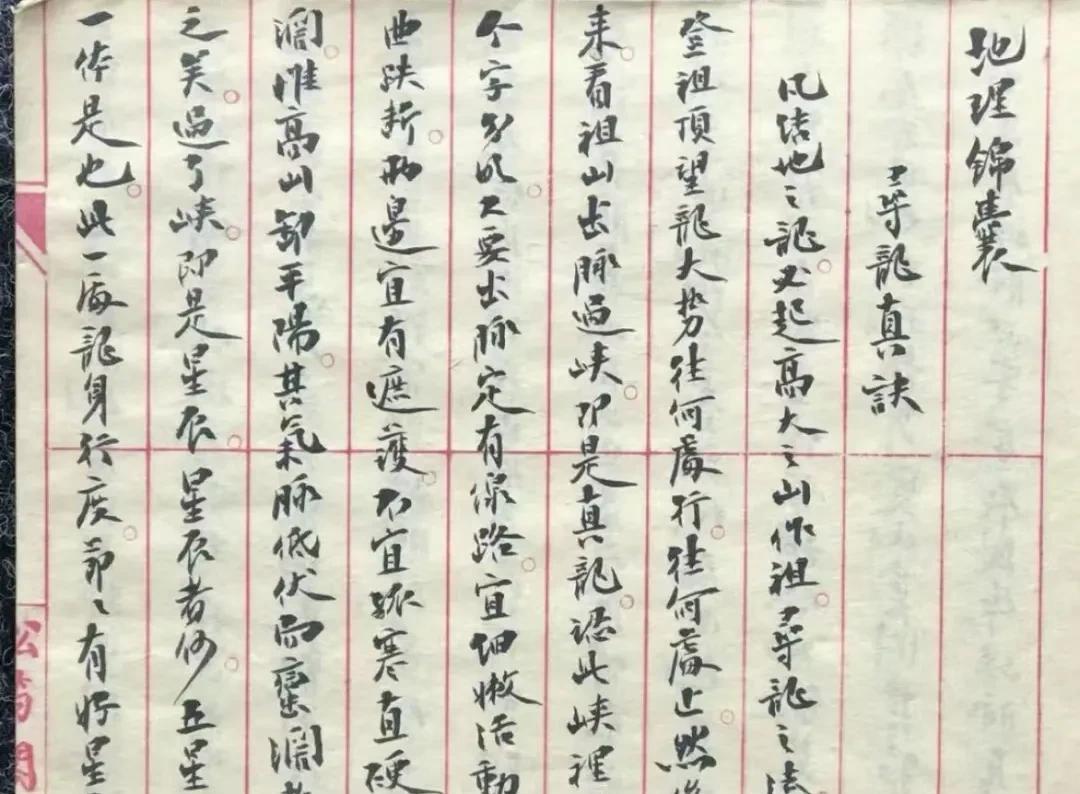 地理錦囊
尋龍真訣
凡结地之龍。必起高大之山作祖。尋龍之法
登祖頂望龍大势往何處行。往何處止。然後
来。看祖山出脉過峡。即是真龍。認此峡裡
个字分明。又要出脉定有線路。宜细嫩活動
曲跌断。两邊宜有遮護。不宜孤寒直硬
濶。惟高山卸平陽。其氣脉低伏而宽濶
之美。過了峡。即是星辰。星辰者何。五星
一体是也。此一處龍身行度。節々有好星